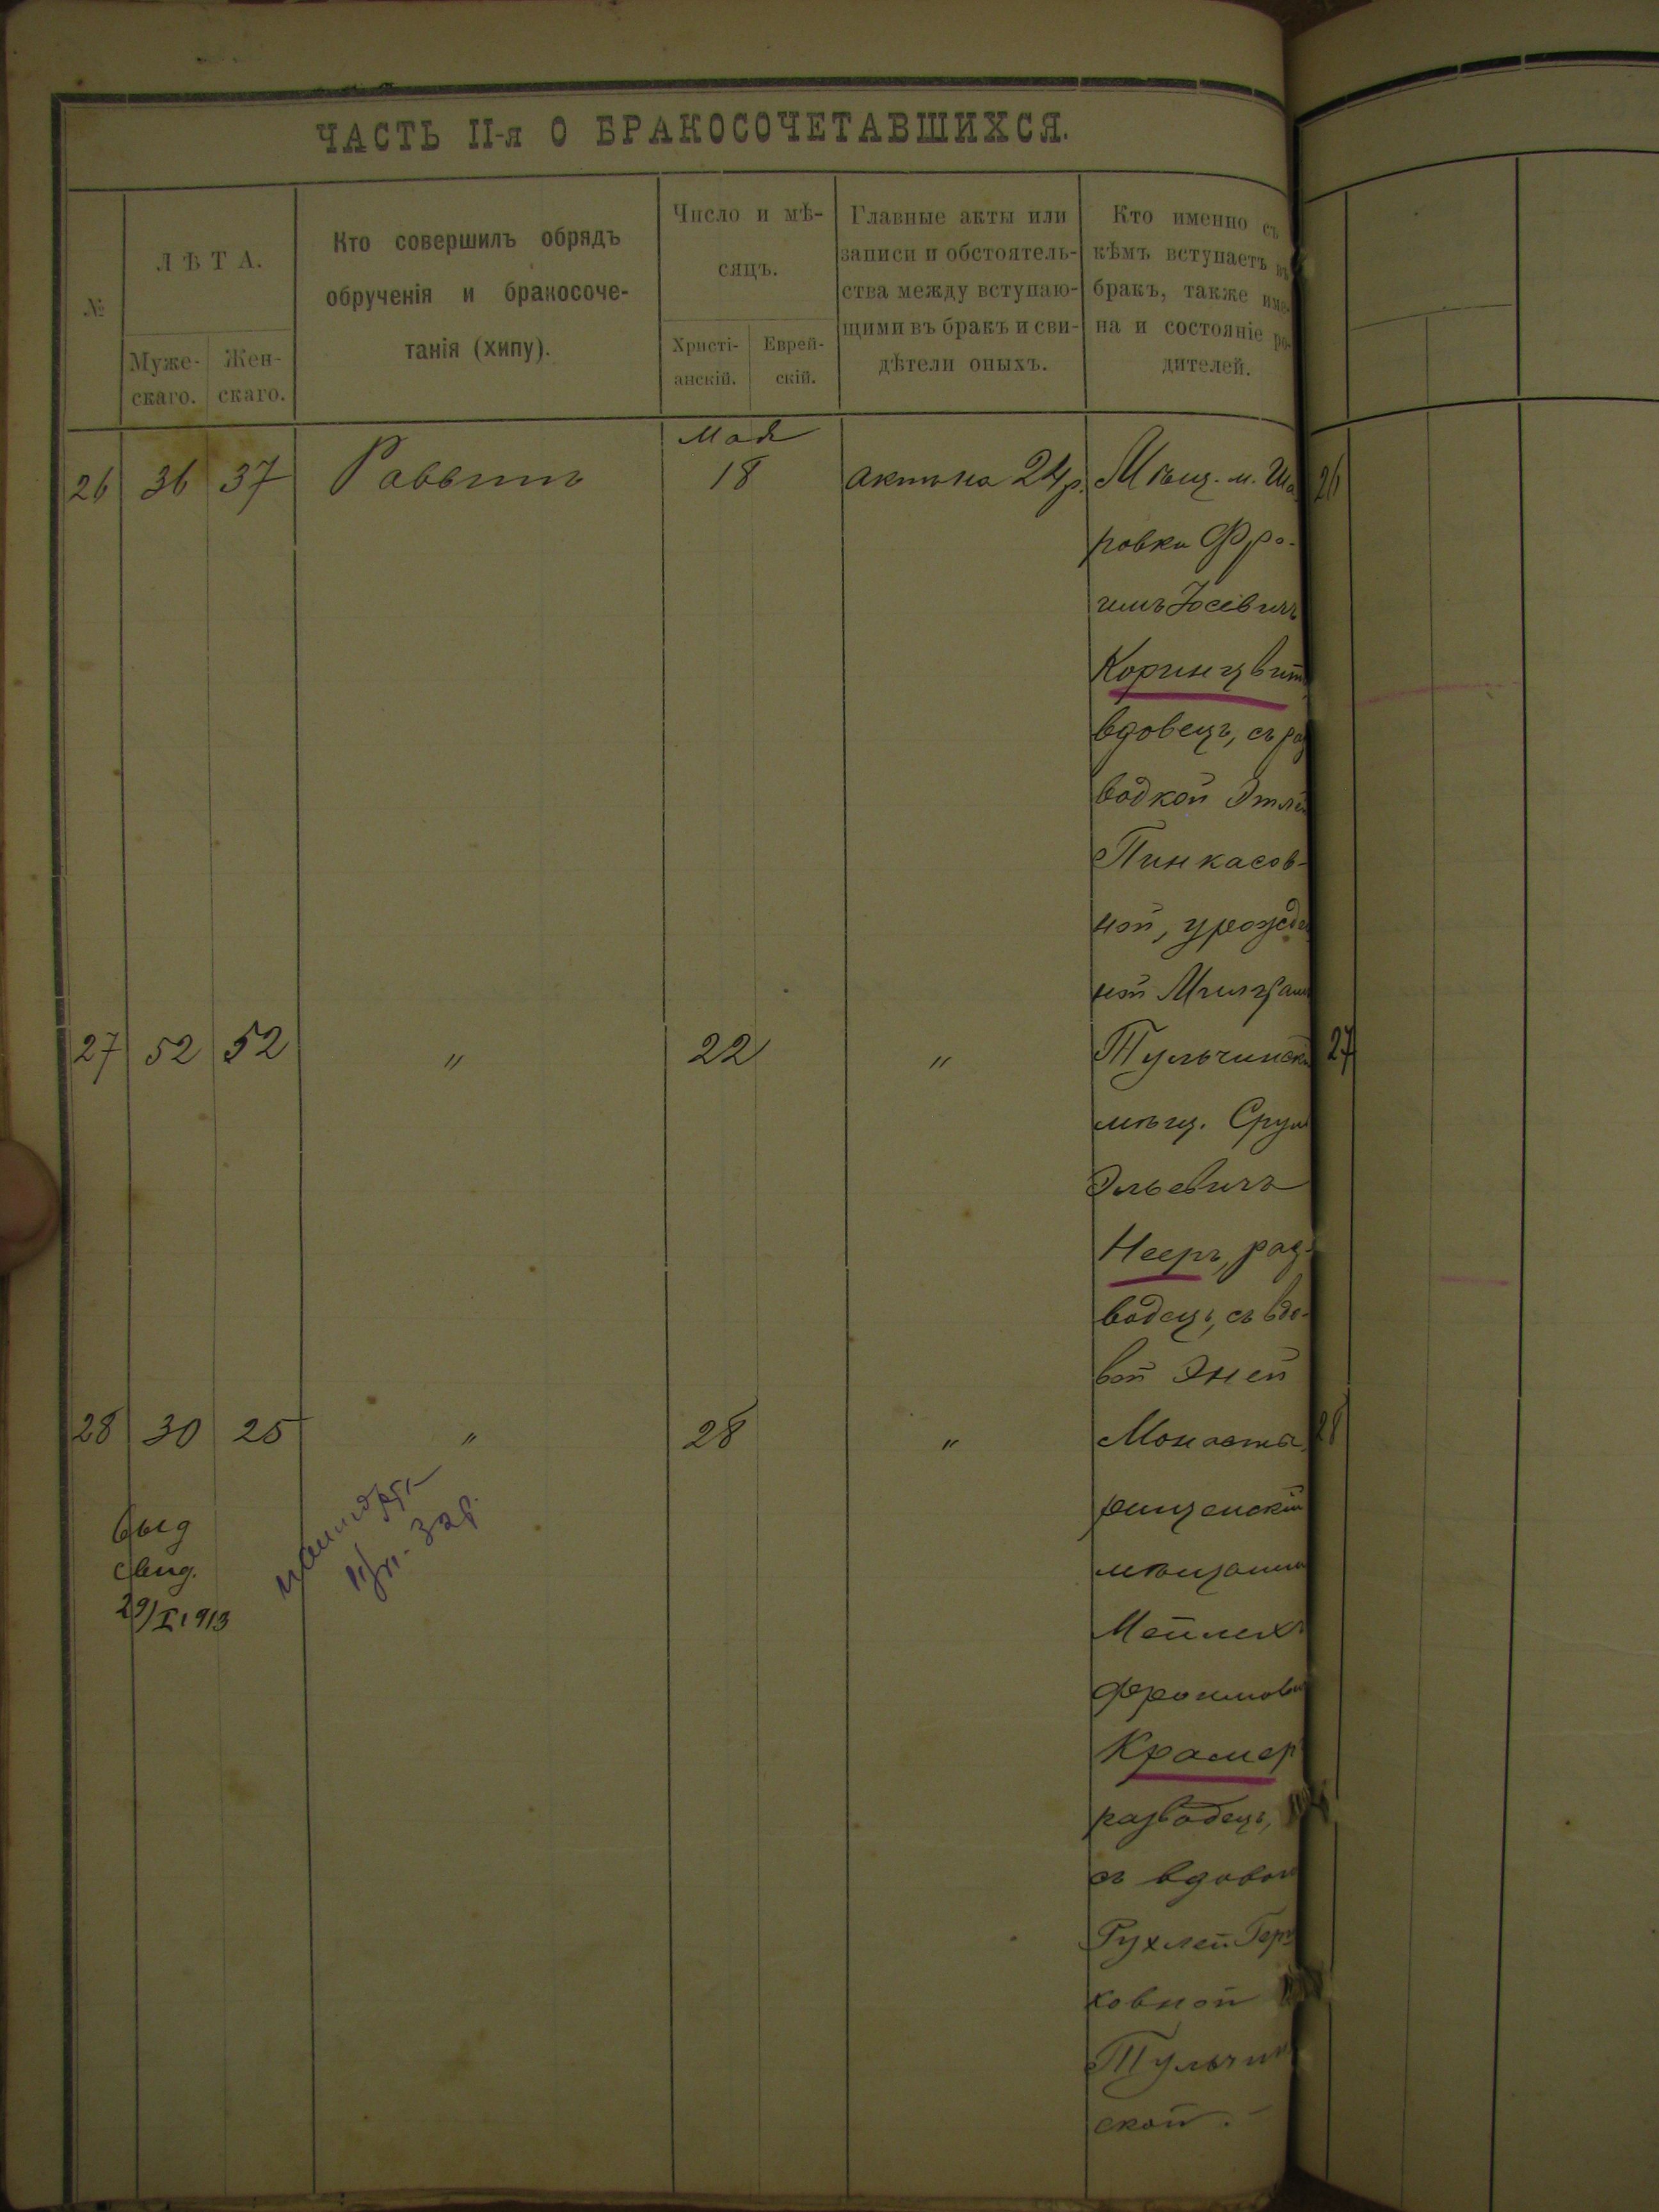 ЧАСТЬ II-я О БРАКОСОЧЕТАВШИХСЯ.
№
ЛѢТА.
Муже-
скаго.
Жен-
скаго.
Кто совершилъ обрядъ
обрученія и бракосоче-
танія (хипу).
Число и мѣ-
сяцъ.
Христі-
анскій.
Еврей-
скій.
Главные акты или
записи и обстоятель-
ства между вступаю-
щими въ бракъ и сви-
дѣтели оныхъ.
Кто именно съ
кѣмъ вступаетъ въ
бракъ, также име-
на и состояніе ро-
дителей.
Мая
26 36 37 Раввинъ 18 актъ на 24 р. Мѣщ. м. Ша 26
ровки Фро-
имъ Іосевичъ
Коринцвит
вдовецъ, съ раз
водкой Этлей
Пинкасов-
ной, урожден
ной
27 52 52 " 22 " Тульчинскій 27
мѣщ. Срул
Эльевичъ
Нееръ, раз-
водецъ, съ вдо-
вой Эней
28 30 25 " 28 " Монасты 28
рищенскій
мѣщанин
Мейлехъ
Фроимович
Крамер
разводецъ,
съ вдовой
Рухлей Герш
ковной
Тульчин
ской.
выд
свид.
29/I 1913